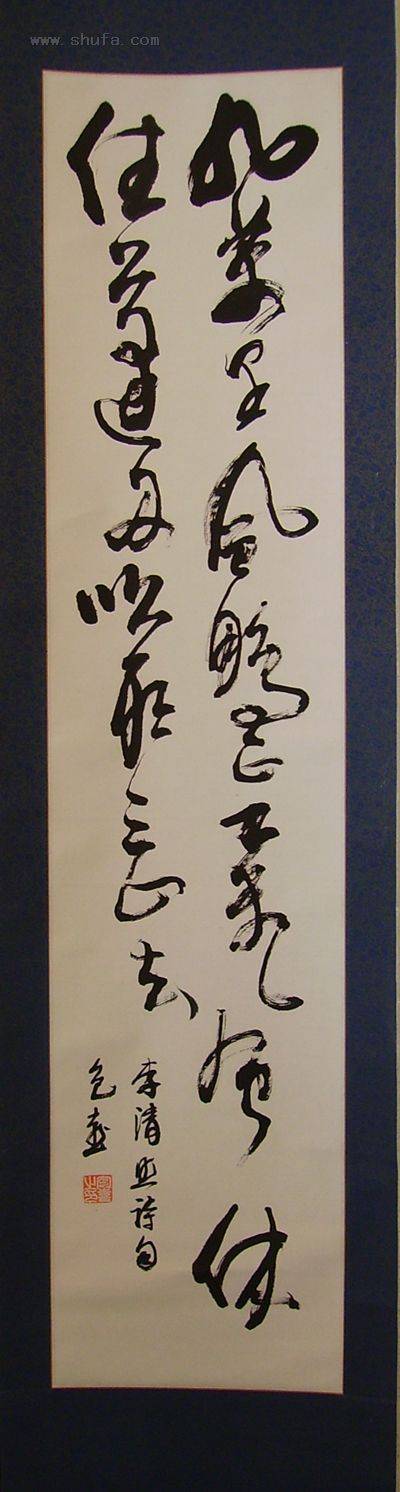 www.shufa.com
九萬里風鵬正舉風休
住蓬舟吹取三山去
李清照詩句